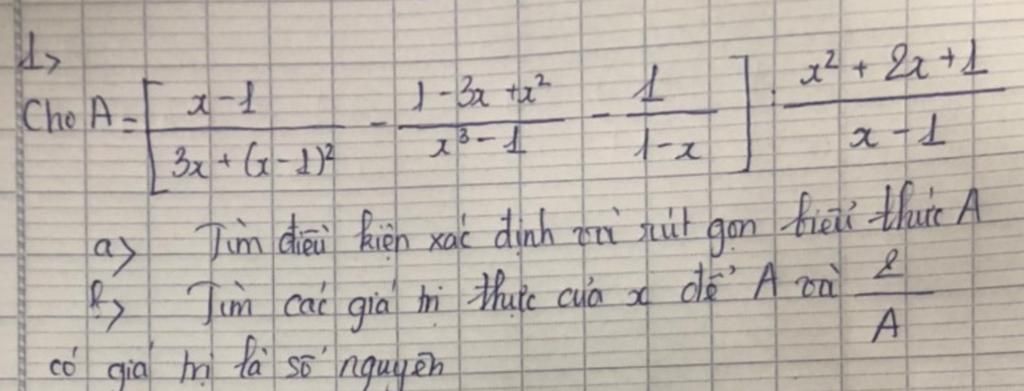 1>
Cho A = [ (x-1)/(3x + (x-1)²) - (1-3x+x²)/(x³-1) - 1/(1-x) ] : (x² + 2x + 1)/(x-1)
a> Tìm điều kiện xác định và rút gọn biểu thức A
b> Tìm các giá trị thực của x để A và 2/A
có giá trị là số nguyên